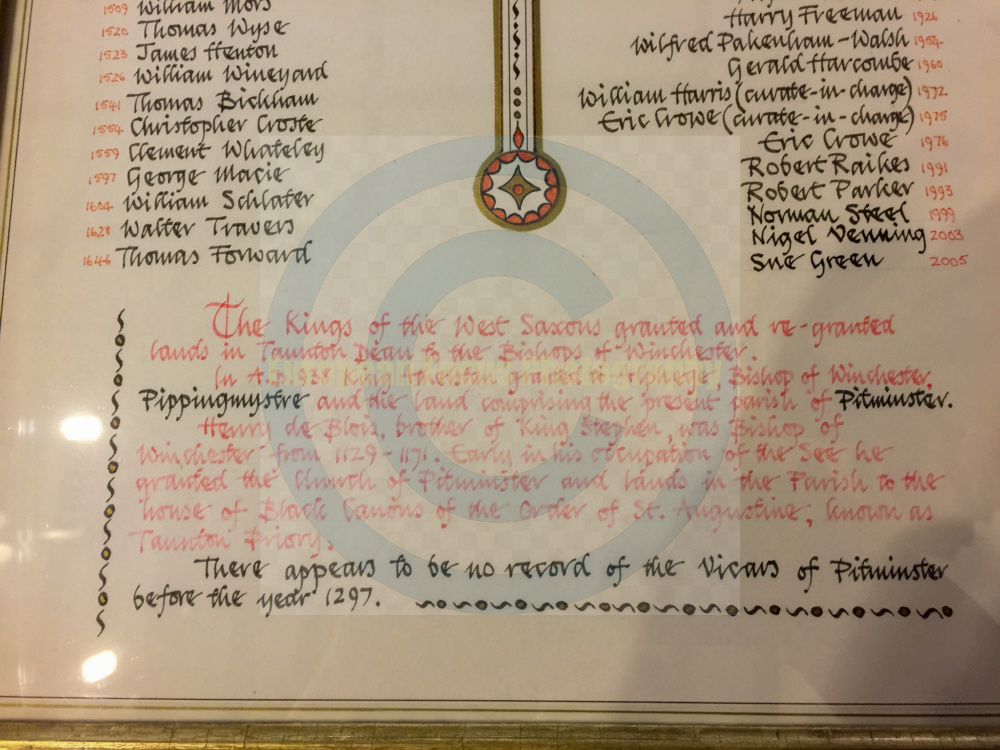 1509 William Mors
1520 Thomas Wyse
1523 James Henton
1526 William Wineyard
1541 Thomas Bickham
1554 Christopher Croste
1559 Clement Whateley
1597 George Macie
1604 William Schlater
1628 Walter Travers
1646 Thomas Forward
Harry Freeman 1926
Wilfred Pakenham-Walsh 1954
Gerald Harcombe 1960
William Harris (curate-in-charge) 1972
Eric Crowe (curate-in-charge) 1975
Eric Crowe 1976
Robert Raikes 1991
Robert Parker 1993
Norman Steel 1999
Nigel Venning 2003
Sue Green 2005
The Kings of the West Saxons granted and re-granted
lands in Taunton Dean to the Bishops of Winchester.
In A.D. 938 King Athelstan granted to Alphege, Bishop of Winchester,
Pippingmystre and the land comprising the present parish of Pitminster.
Henry de Blois, brother of King Stephen, was Bishop of
Winchester from 1129-1171. Early in his occupation of the See he
granted the Church of Pitminster and lands in the Parish to the
house of Black Canons of the Order of St. Augustine, known as
Taunton Priory.
There appears to be no record of the Vicars of Pitminster
before the year 1297.